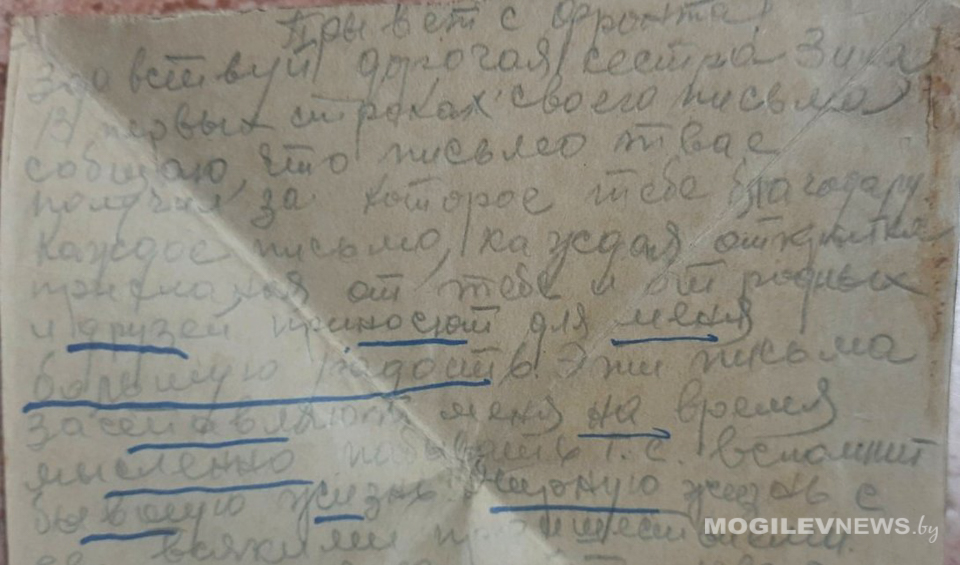 Привет с фронта!
Здавствуй дорогая сестра Зина
В первых строках своего письма
собщаю, что письмо твае
получил, за которое тебе благодарю
каждое письмо, каждая открытка
присланая от тебе и от родных
и друзей приносют для меня
большую радость. Эти письма
заставляют меня на время
мысленно побывать т.с. вспомнит
бывшую жизнь. Мирную жизнь с
всякими
MOGILEVNEWS.by